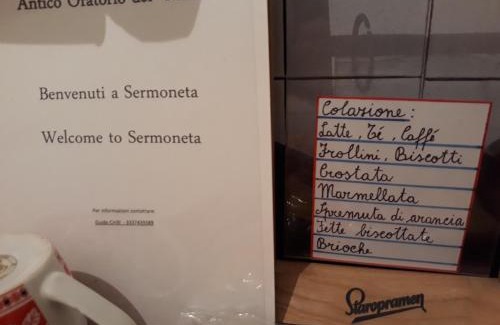 Antico Oratorio dei
Benvenuti a Sermoneta
Welcome to Sermoneta
Per informazioni contattare
Colazione:
Latte, Té, Caffé
Frollini, Biscotti
Crostata
Marmellata
Spremuta di arancia
Fette biscottate
Brioche
Staropramen